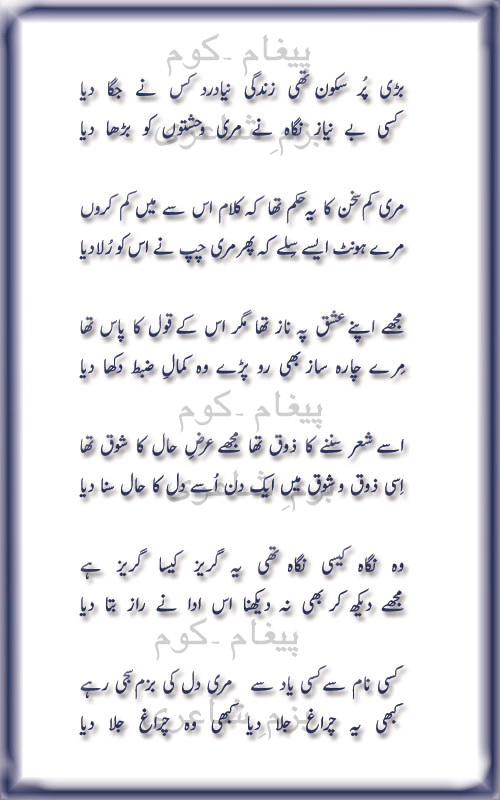 پیغام ۔کوم
بڑی پُر سکون تھی زندگی نیادرد کس نے جگا دیا
بزمِ شاعری
کسی بے نیاز نگاہ نے مری وحشتوں کو بڑھا دیا
مری کم سخن کا یہ حکم تھا کہ کلام اس سے میں کم کروں
مرے ہونٹ ایسے سِلے کہ پھر مری چپ نے اس کو رُلا دیا
مجھے اپنے عشق پہ ناز تھا مگر اس کے قول کا پاس تھا
مرے چارہ ساز بھی رو پڑے وہ کمالِ ضبط دکھا دیا
پیغام ۔کوم
اسے شعر سننے کا ذوق تھا مجھے عرضِ حال کا شوق تھا
بزمِ شاعری
اِسی ذوق و شوق میں ایک دن اُسے دل کا حال سنا دیا
وہ نگاہ کیسی نگاہ تھی یہ گریز کیسا گریز ہے
مجھے دیکھ کر بھی نہ دیکھنا اس ادا نے راز بتا دیا
پیغام ۔کوم
کسی نام سے کسی یاد سے مری دل کی بزم سجی رہے
بزمِ شاعری
کبھی یہ چراغ جلا دیا کبھی وہ چراغ جلا دیا